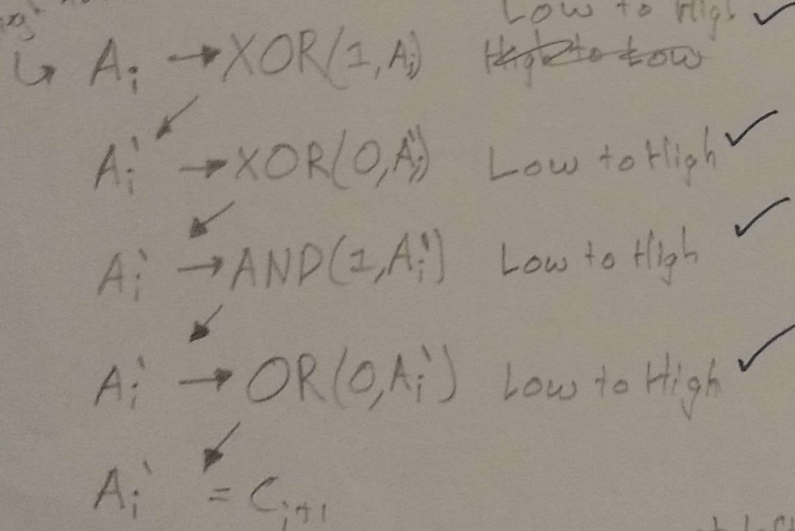 Low to High ✓
↳ Ai → XOR(1,Ai) High to Low
Ai' → XOR(0,Ai') Low to High ✓
Ai' → AND(1,Ai') Low to High ✓
Ai' → OR(0,Ai') Low to High ✓
Ai' = Ci+1